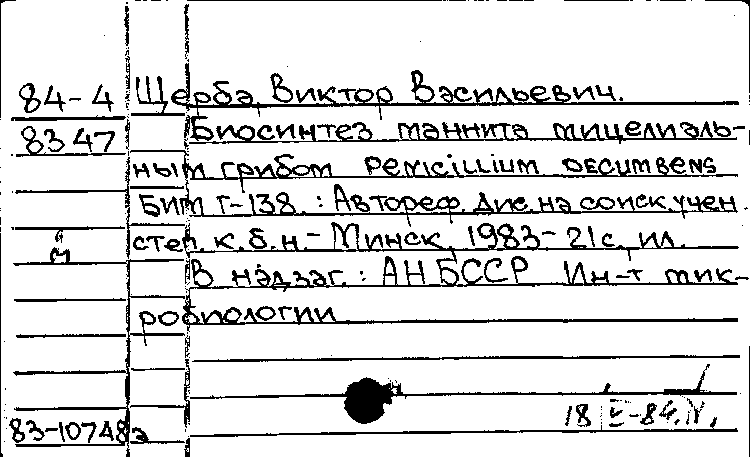 84-4 Щерба, Виктор Васильевич.
8347 Биосинтез маннита мицелиаль-
ным грибом Penicillium decumbens
БИМ Г-138. : Автореф. дис. на соиск. учен.
степ. к.б.н. - Минск, 1983 - 21с., ил.
В надзаг.: АН БССР Ин-т мик-
робиологии
18 V-84.
83-10748а